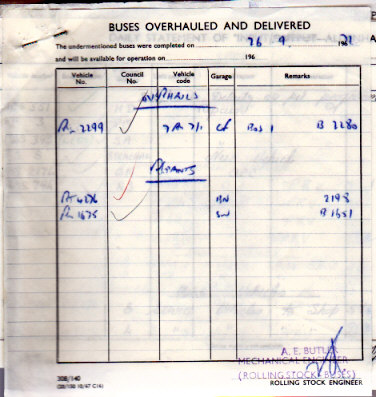 BUSES OVERHAULED AND DELIVERED
The undermentioned buses were completed on 26 9 1971
and will be available for operation on 196
Vehicle No. Council No. Vehicle code Garage Remarks
OVERHAULS
2299 ✓ 7 7/1 CF Bos 1 B 2280
REPAINTS
✓ BN 2198
1675 ✓ SW B 1651
A. E. BUTLER
MECHANICAL ENGINEER
(ROLLING STOCK BUSES)
ROLLING STOCK ENGINEER
308/140